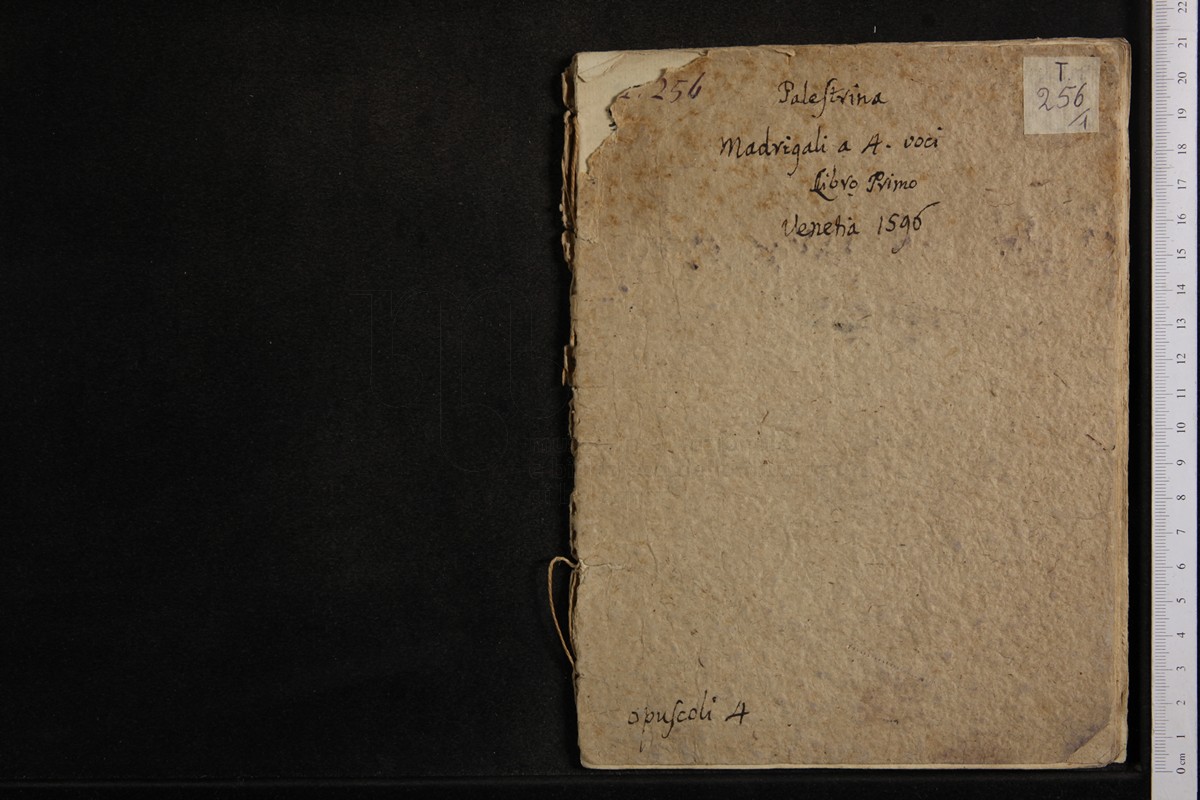 . 256
Paleſtrina
T.
256
/1
Madrigali a 4. voci
Libro Primo
Venetia 1596
opuſcoli 4
22
21
20
19
18
17
16
15
14
13
12
11
10
9
8
7
6
5
4
3
2
1
0 cm